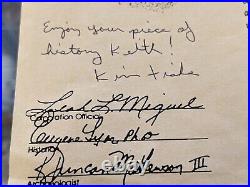 Enjoy your piece of
history Keith!
Kim Fisher
Leah L Miguel
Corporation Official
Eugene Lyon PhD
Historian
R Duncan Mathewson III
Archaeologist